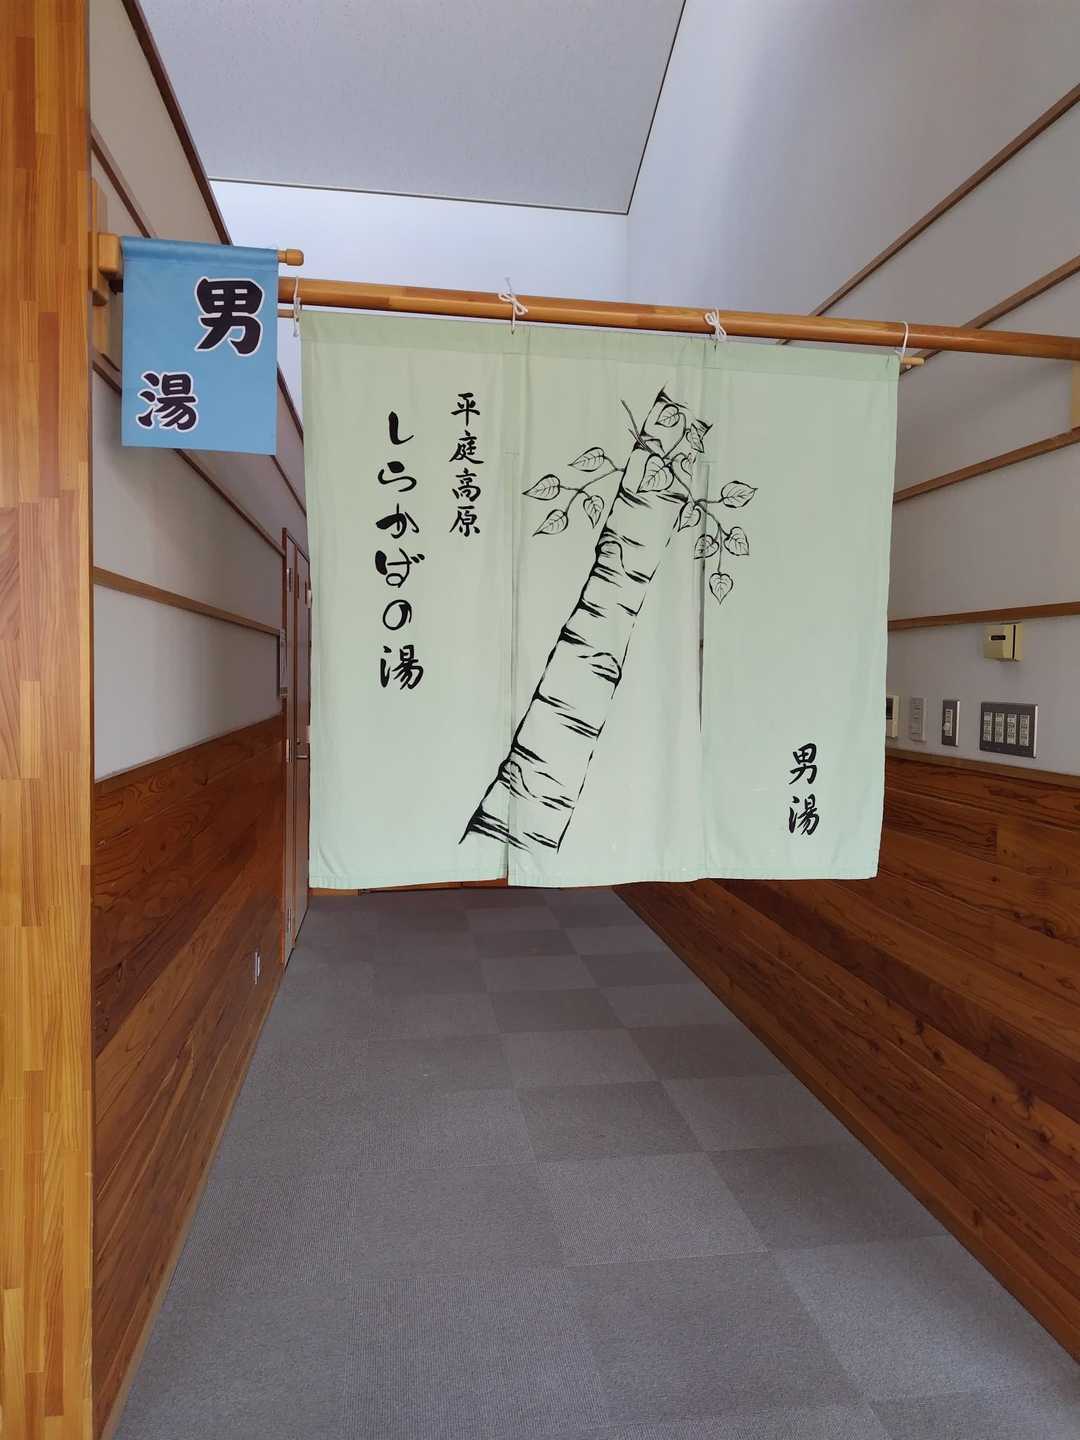 男湯
平庭高原
しらかばの湯
男湯